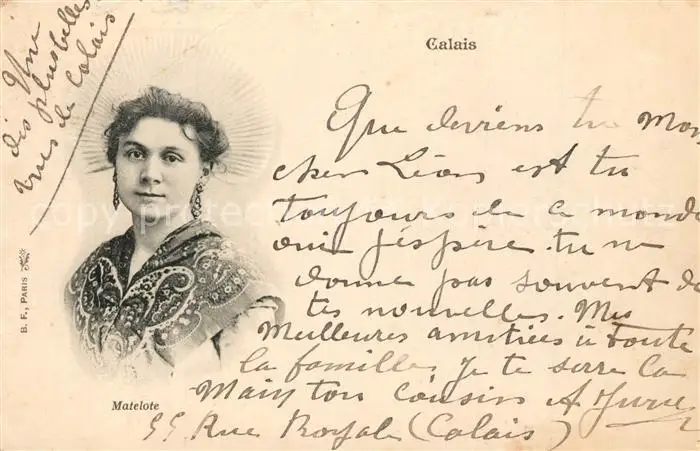 Calais
Une
des plus belles
vues de Calais
Que deviens tu Mon
cher Léon est tu
toujours de ce monde
oui j'éspère. tu ne
donne pas souvent de
tes nouvelles. Mes
Meilleures amitiées à toute
la famille je te serre la
Main ton cousin A
55 Rue Royale (Calais)
Matelote
B. F., PARIS
copyright protected